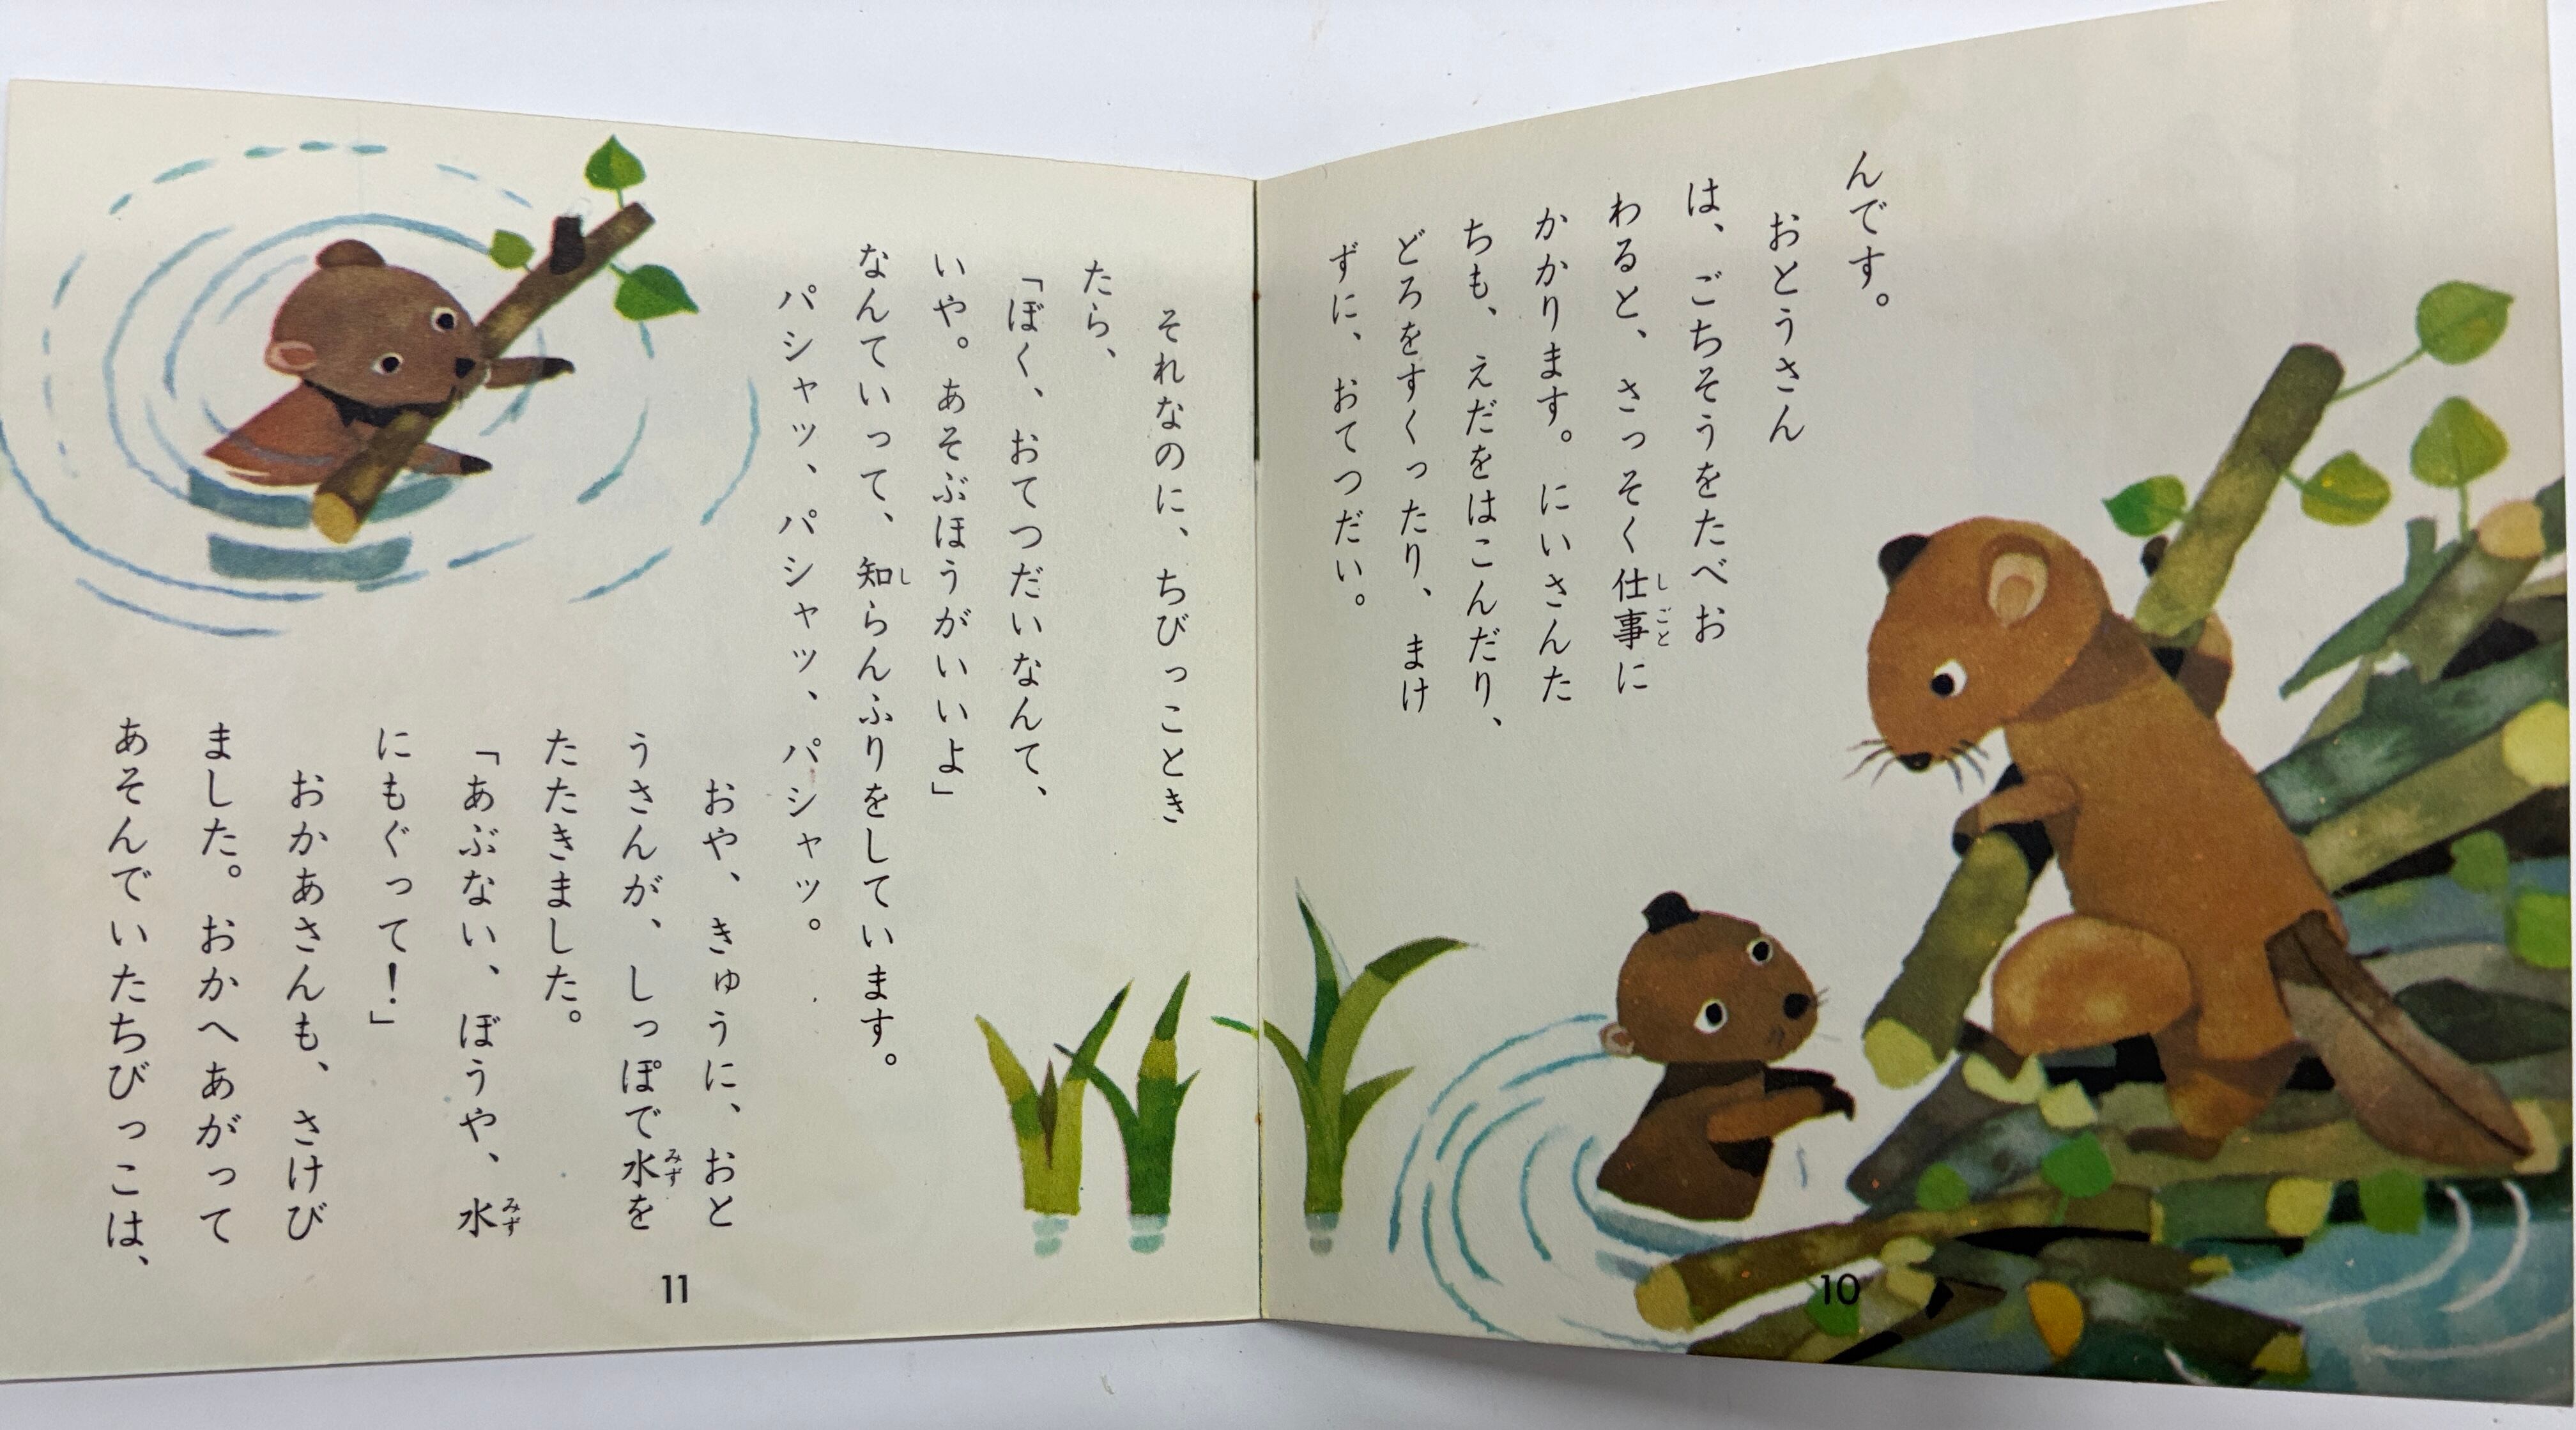 んです。
おとうさん
は、ごちそうをたべお
わると、さっそく仕事に
しごと
かかります。にいさんた
ちも、えだをはこんだり、
どろをすくったり、まけ
ずに、おてつだい。
10
それなのに、ちびっことき
たら、
「ぼく、おてつだいなんて、
いや。あそぶほうがいいよ」
なんていって、知らんふりをしています。
し
パシャッ、パシャッ、パシャッ。
おや、きゅうに、おと
うさんが、しっぽで水を
みず
たたきました。
「あぶない、ぼうや、水
みず
にもぐって!」
おかあさんも、さけび
ました。おかへあがって
あそんでいたちびっこは、
11